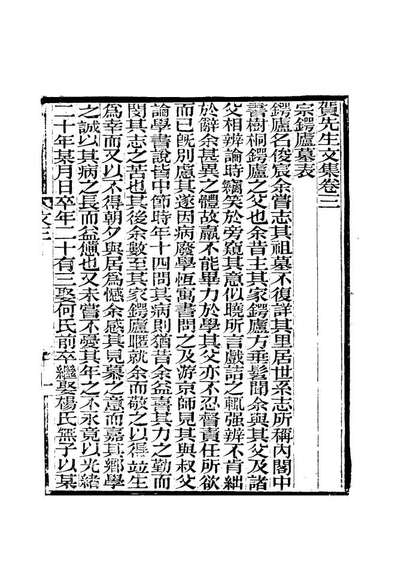 賀先生文集卷三
宗鍔廬墓表
鍔廬名俊宸余嘗志其祖墓不復詳其里居世系志所稱內閣中
書樹桐鍔廬之父也余昔主其家鍔廬方垂髫聞余與其父及諸
父相辨論時竊笑於旁窺其意似曉所言戲詰之輒強辨不肯絀
於辭余甚異之體故羸不能畢力於學其父亦不忍督責任所欲
而已旣別慮其遂因病廢學恆寓書問之及游京師見其與叔父
論學書說皆中節時年十四問其病則猶昔余益喜其力之勤而
閔其志之苦也其後余數至其家鍔廬輒就余而敬之以得竝生
爲幸而又以不得朝夕與居爲憾余感其見慕之意而嘉其鄉學
之誠以其病之長而益憊也又未嘗不憂其年之不永竟以光緒
二十年某月日卒年二十有三娶何氏前卒繼娶楊氏無子以某
文三
一